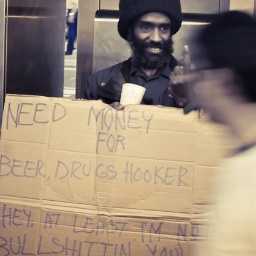 NEED MONEY
FOR
BEER, DRUGS, HOOKER
HEY, AT LEAST I'M NO
BULLSHITTIN' YOU